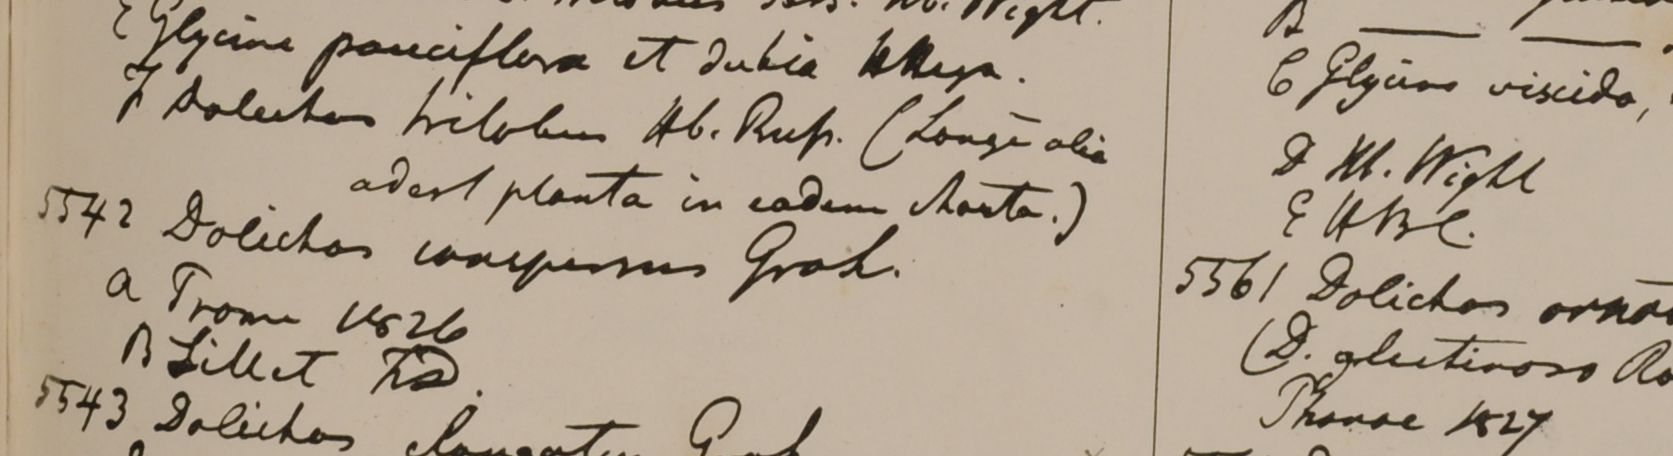 Hb. Wight.
E Glycine pauciflora et dubia
F Dolichos trilobus Hb. Rusp. (Longe alia
adest planta in eadem charta.)
5542 Dolichos Grah.
a Prome 1826
B Sillet
5543 Dolichos elongatus Grah.
B
C Glycine viscida,
D Hb. Wight
E HBC.
5561 Dolichos
(D. glutinoso
1827